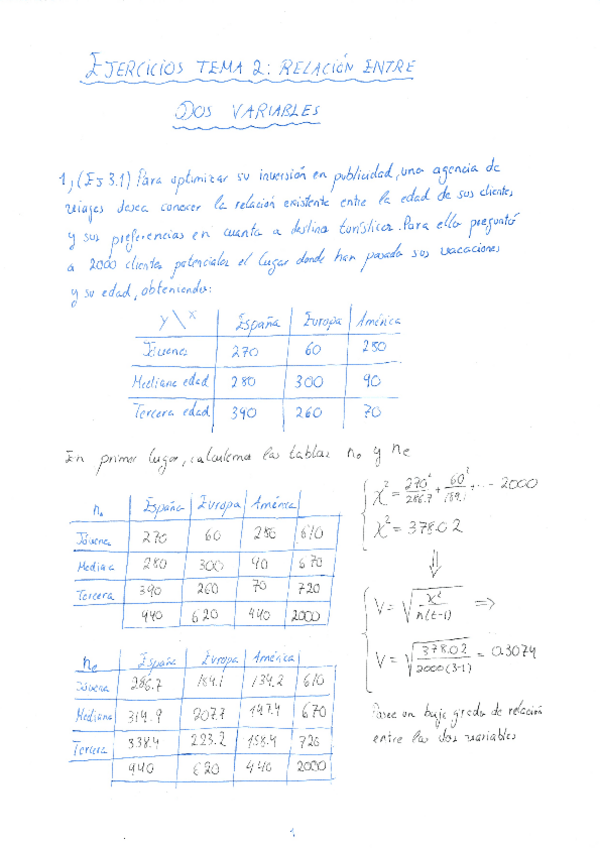 EJERCICIOS TEMA 2: RELACIÓN ENTRE
DOS VARIABLES
1, (EJ 3.1) Para optimizar su inversión en publicidad, una agencia de
viajes desea conocer la relación existente entre la edad de sus clientes
y sus preferencias en cuanto a destino turístico. Para ello preguntó
a 2000 clientes potenciales el lugar donde han pasado sus vacaciones
y su edad, obteniendo:
y \ x España Europa América
Jóvenes 270 60 280
Mediana edad 280 300 90
Tercera edad 390 260 70
En primer lugar, calculemos las tablas no y ne
no España Europa América
Jóvenes 270 60 280 610
Mediana 280 300 90 670
Tercera 390 260 70 720
940 620 440 2000
χ² = 270²/286.7 + 60²/189.1 + ... - 2000
χ² = 378.02
⇓
V = √(χ²/n(t-1)) ⇒
V = √(378.02/2000(3-1)) = 0.3074
Posee un bajo grado de relación
entre las dos variables
ne España Europa América
Jóvenes 286.7 189.1 134.2 610
Mediana 314.9 207.7 147.4 670
Tercera 338.4 223.2 158.4 720
940 620 440 2000
1